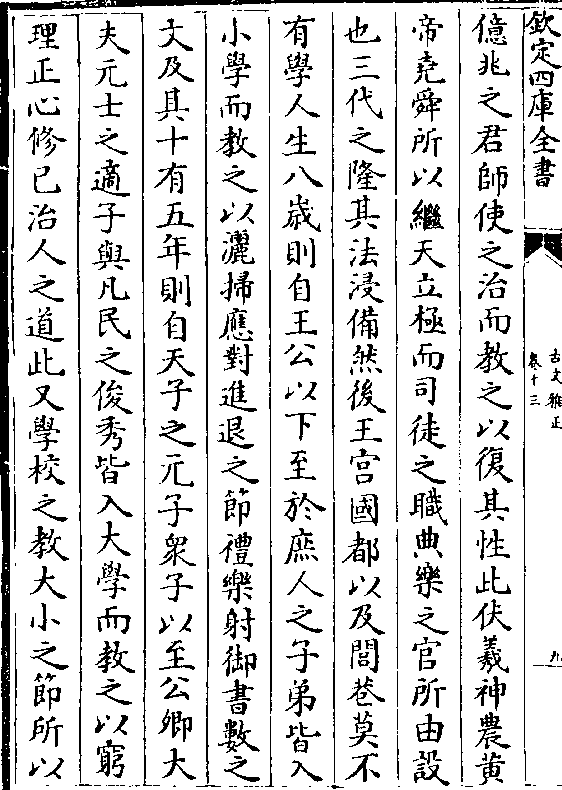 欽定四庫全書
古文雅正
卷十三
九
億兆之君師使之治而教之以復其性此伏羲神農黄
帝堯舜所以繼天立極而司徒之職典樂之官所由設
也三代之隆其法浸備然後王宫國都以及閭巷莫不
有學人生八歳則自王公以下至於庶人之子弟皆入
小學而教之以灑掃應對進退之節禮樂射御書數之
文及其十有五年則自天子之元子衆子以至公卿大
夫元士之適子與凡民之俊秀皆入大學而教之以窮
理正心修已治人之道此又學校之教大小之節所以